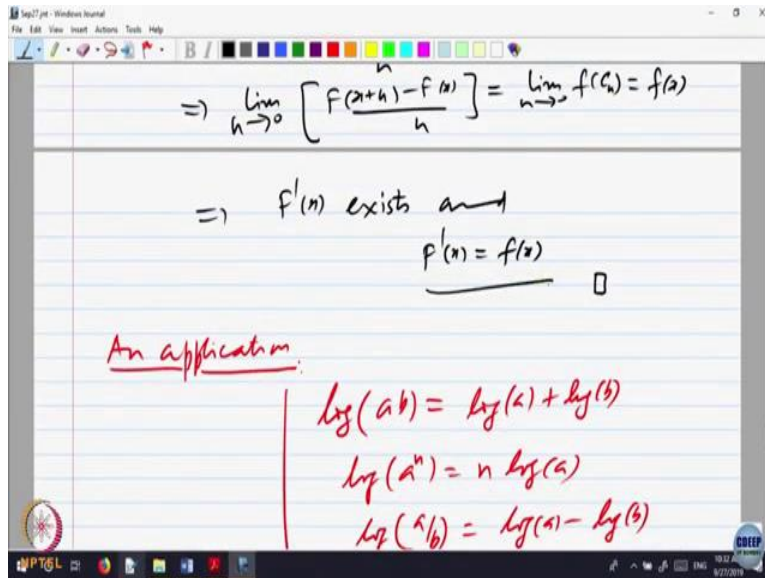 Sep27.jnt - Windows Journal
File Edit View Insert Actions Tools Help
B I
h
=) lim h→0 [ F(x+h) - F(x) / h ] = lim h→0 f(Ch) = f(x)
=) F'(x) exists and
F'(x) = f(x)
An application:
log(ab) = log(a) + log(b)
log(a^n) = n log(a)
log(a/b) = log(a) - log(b)
NPTEL
CDEEP
IIT BOMBAY
ENG
10:32
9/27/2019